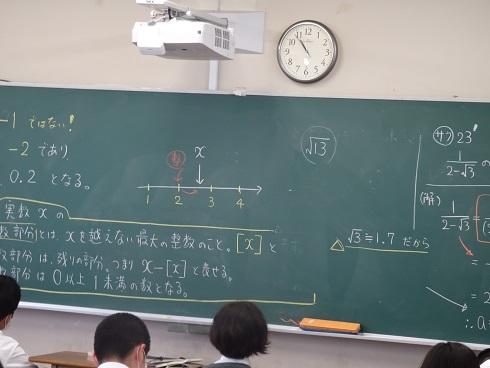 -1 ではない!
-2 であり
0.2 となる。
x
1 2 3 4
実数 x の
数部分とは、xを越えない最大の整数のこと。[x]と
数部分は、残りの部分。つまり x-[x]と表せる。
数部分は0以上1未満の数となる。
√13
√3≒1.7 だから
サク 23
1
2-√3
(解)
1
2-√3
=
=
∴a